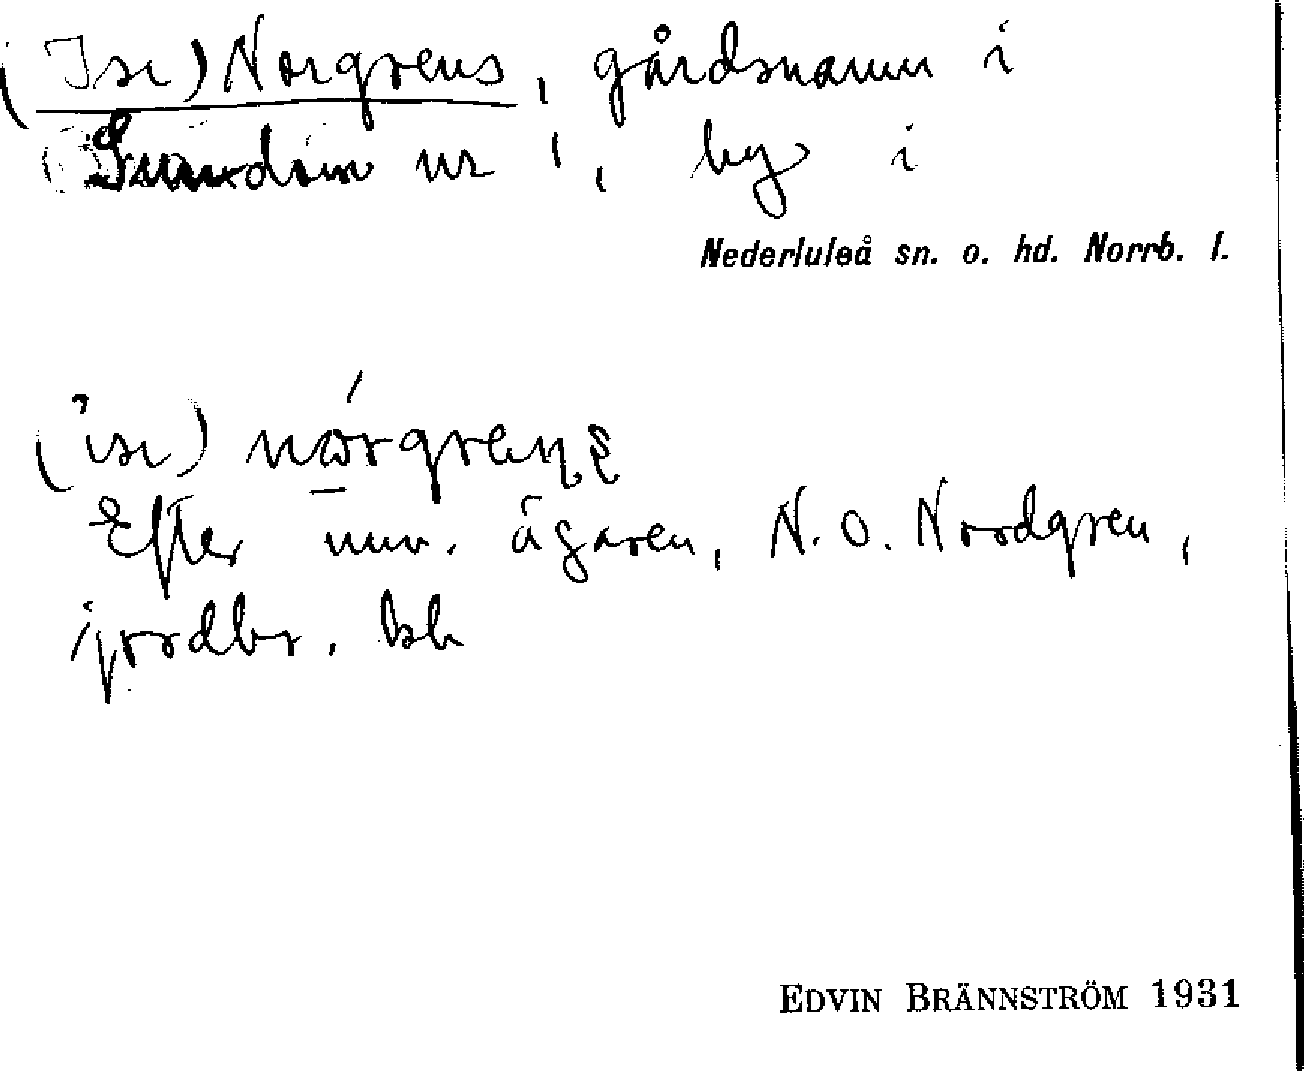 (Isr) Norgrens, gårdsnamn i
nr 1, by i
Nederluleå sn. o. hd. Norrb. l.
Efter nuv. ägaren, N. O. Nordgren,
jordbr.
EDVIN BRÄNNSTRÖM 1931